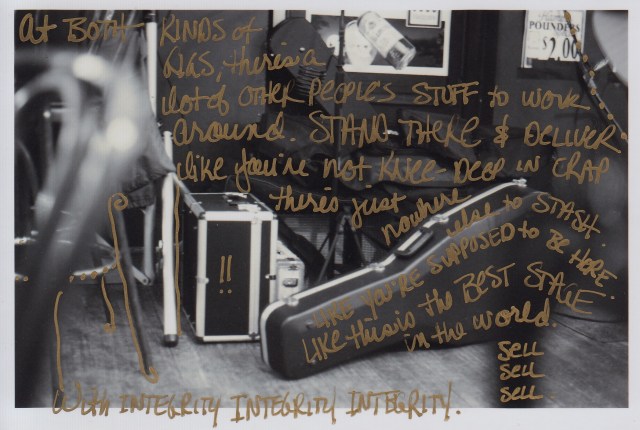 At BOTH KINDS of
GIGS, there's a
lot of OTHER PEOPLE'S STUFF to work
around. STAND THERE & DELIVER
like you're not KNEE-DEEP IN CRAP
there's just nowhere
else to STASH.
LIKE YOU'RE SUPPOSED to BE HERE.
LIKE this is the BEST STAGE
in the world.
SELL
SELL
SELL.
With INTEGRITY INTEGRITY INTEGRITY.
!!
POUNDERS
$2.00